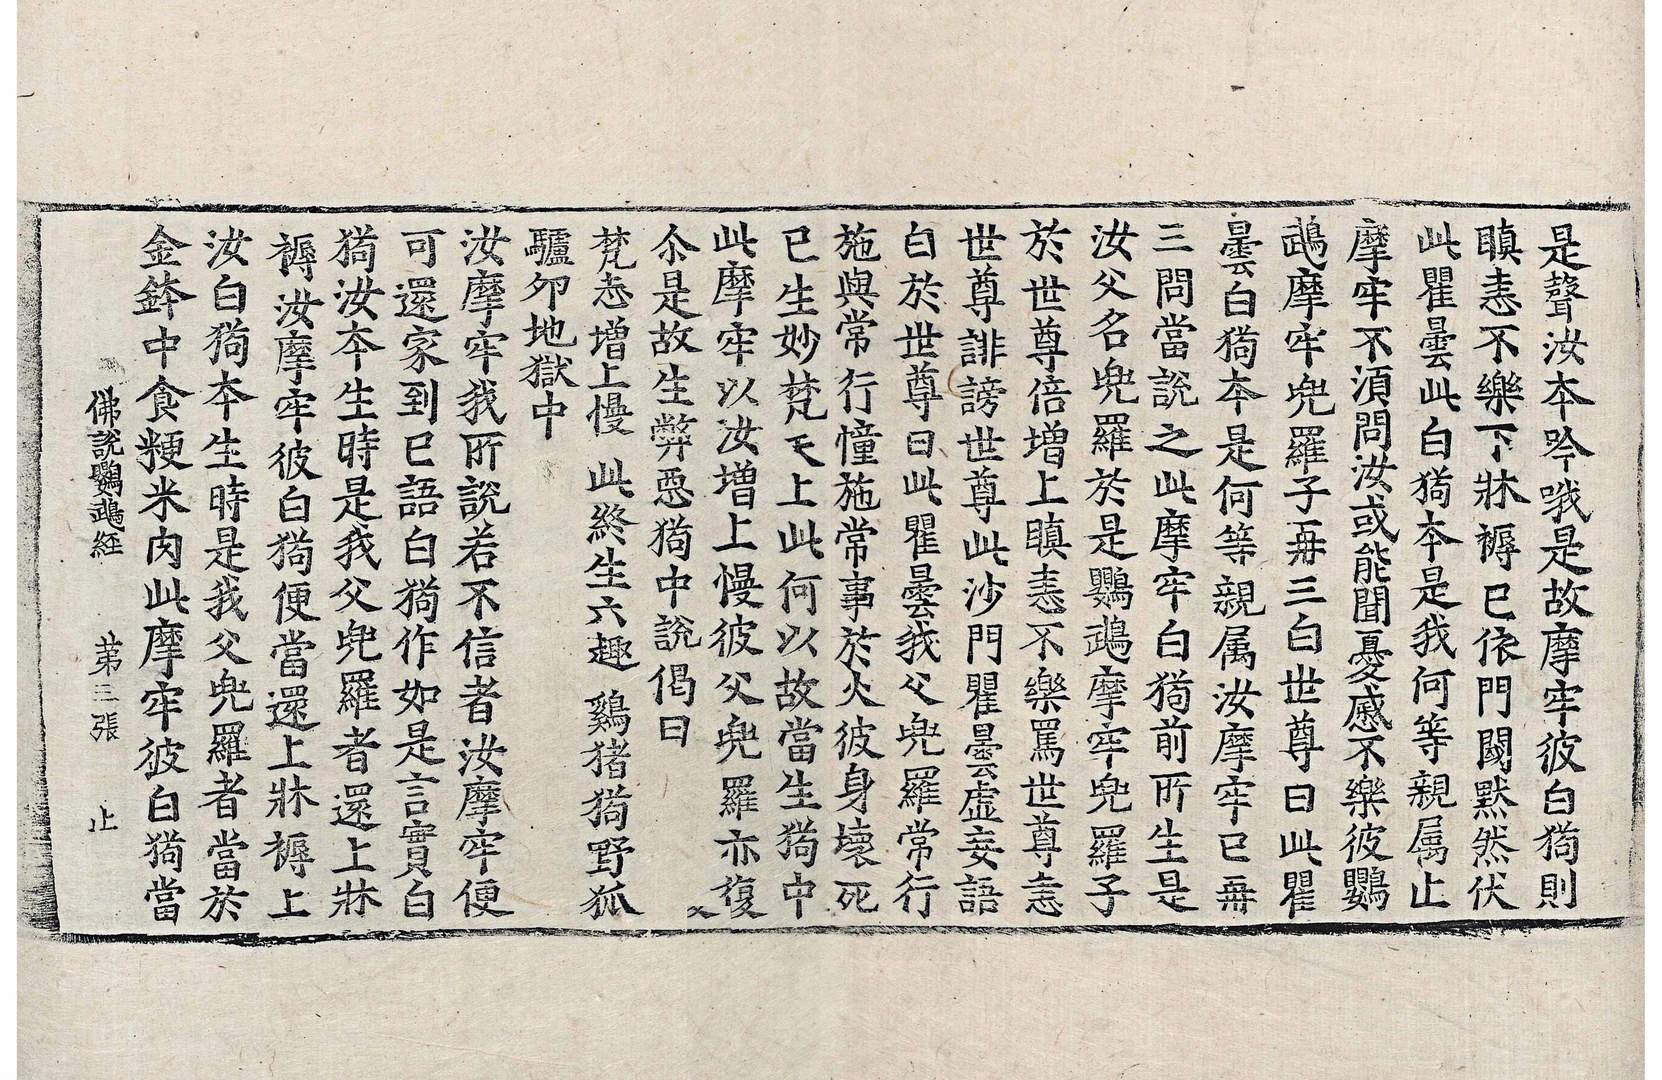 是聲汝本吟哦是故摩牢彼白猗則
瞋恚不樂下牀褥已依門閫默然伏
此瞿曇此白猗本是我何等親属止
摩牢不湏問汝或能聞憂慼不樂彼鸚
鵡摩牢兜羅子再三白世尊曰此瞿
曇白猗本是何等親属汝摩牢已再
三問當說之此摩牢白猗前所生是
汝父名兜羅於是鸚鵡摩牢兜羅子
於世尊倍增上瞋恚不樂罵世尊恚
世尊誹謗世尊此沙門瞿曇虛妄語
白於世尊曰此瞿曇我父兜羅常行
施與常行憧施常事於火彼身壞死
已生妙梵天上此何以故當生猗中
此摩牢以汝增上慢彼父兜羅亦復
尒是故生弊惡猗中說偈曰
梵志增上慢 此終生六趣 鷄猪猗野狐
驢卵地獄中
汝摩牢我所說若不信者汝摩牢便
可還家到已語白猗作如是言實白
猗汝本生時是我父兜羅者還上牀
褥汝摩牢彼白猗便當還上牀褥上
汝白猗本生時是我父兜羅者當於
金鉢中食粳米肉此摩牢彼白猗當
佛說鸚鵡経 苐三張 止